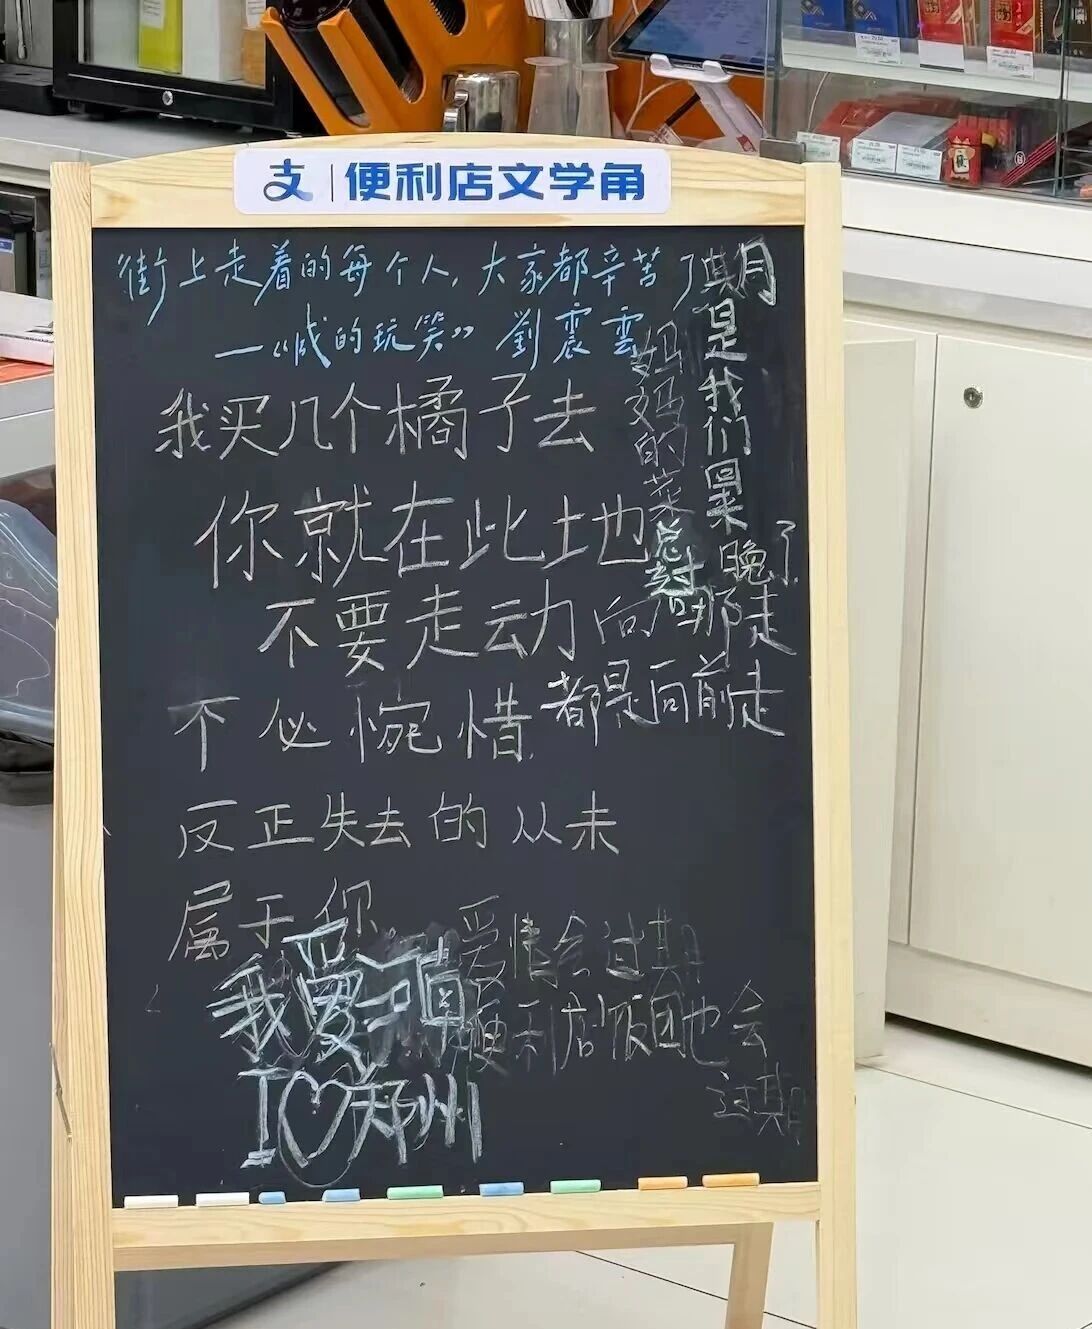 支 | 便利店文学角
街上走着的每个人,大家都辛苦了
—《咸的玩笑》 劉震雲
我买几个橘子去
你就在此地
不要走动
向哪走
都是向前走
不必惋惜
反正失去的从未
属于你
妈妈的菜
总过
期是我们冒
晚了
爱情会过期
便利店饭团也会
过期
我爱
I♡郑州